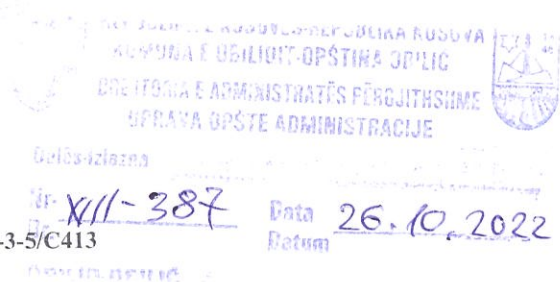 REPUBLIKA E KOSOVËS-REPUBLIKA KOSOVA
KOMUNA E OBILIQIT-OPŠTINA OBILIĆ
DREJTORIA E ADMINISTRATËS PËRGJITHSHME
UPRAVA OPŠTE ADMINISTRACIJE
Dalës-Izlazna
Nr. XIII-387 Data 26.10.2022
-3-5/C413 Datum